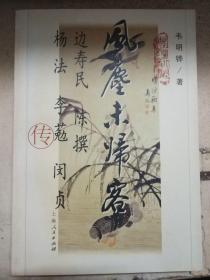 韦明铧 著
風塵未歸客
边寿民 陈撰
杨法 李葂 闵贞
传
上海人民出版社